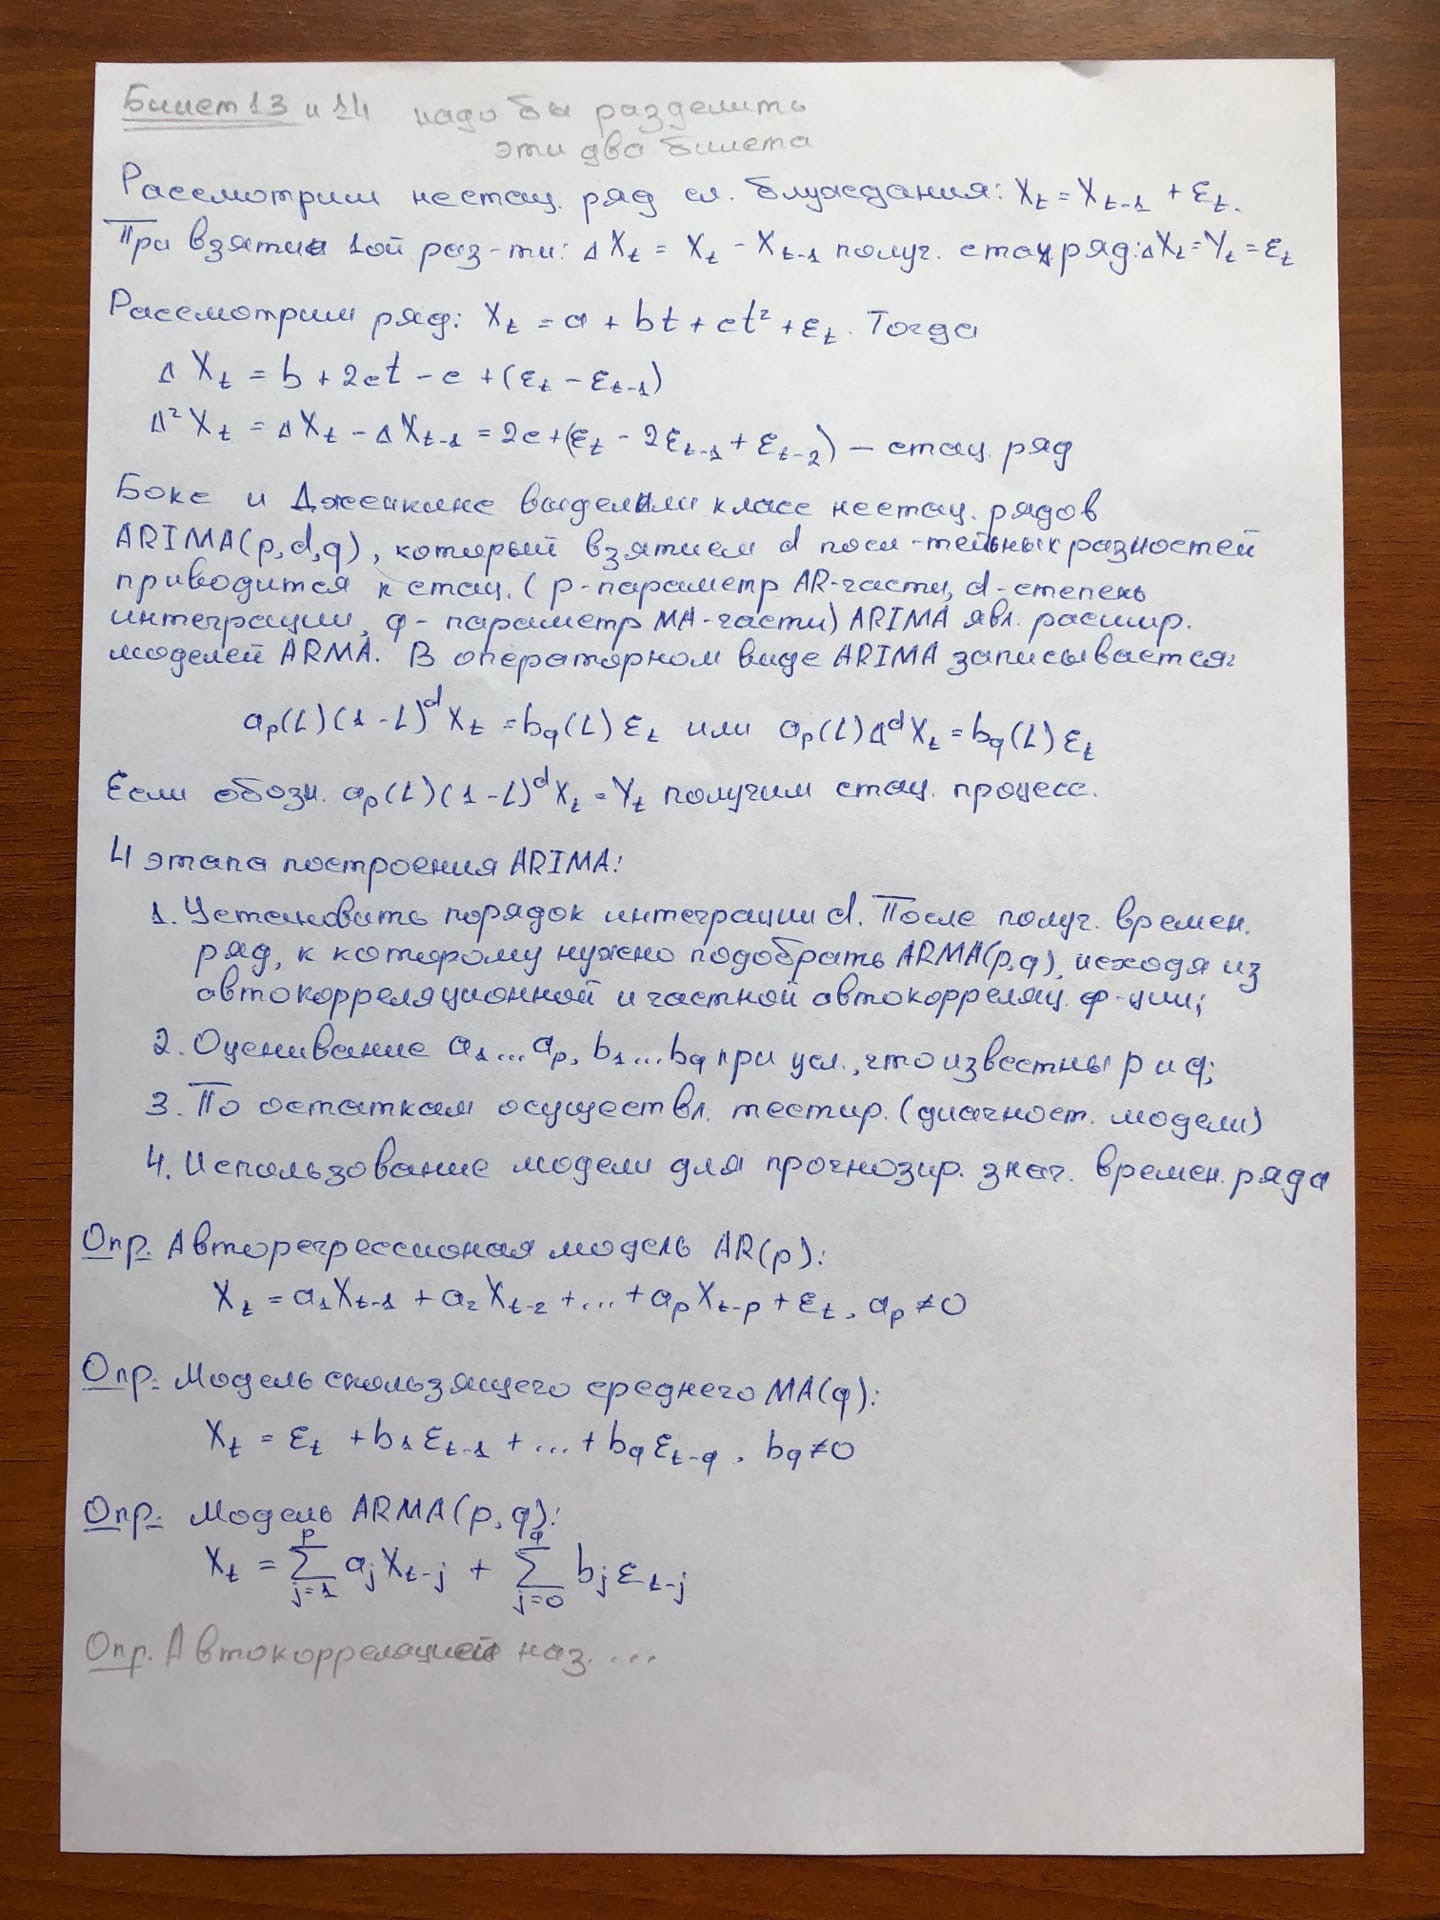 Билет 13 и 14 надо бы разделить
эти два билета
Рассмотрим нестац. ряд сл. блуждания: Xₜ = Xₜ₋₁ + εₜ.
При взятии 1ой раз-ти: ΔXₜ = Xₜ - Xₜ₋₁ получ. стац. ряд: ΔXₜ = Yₜ = εₜ
Рассмотрим ряд: Xₜ = a + bt + ct² + εₜ. Тогда
ΔXₜ = b + 2ct - c + (εₜ - εₜ₋₁)
Δ²Xₜ = ΔXₜ - ΔXₜ₋₁ = 2c + (εₜ - 2εₜ₋₁ + εₜ₋₂) - стац. ряд
Бокс и Дженкинс выделили класс нестац. рядов
ARIMA(p,d,q), который взятием d посл-тельных разностей
приводится к стац. (p-параметр AR-части, d-степень
интеграции, q- параметр MA-части) ARIMA явл. расшир.
моделей ARMA. В операторном виде ARIMA записывается:
aₚ(L)(1-L)ᵈXₜ = b_q(L)εₜ или aₚ(L)ΔᵈXₜ = b_q(L)εₜ
Если обозн. aₚ(L)(1-L)ᵈXₜ = Yₜ получим стац. процесс.
4 этапа построения ARIMA:
1. Установить порядок интеграции d. После получ. времен.
ряд, к которому нужно подобрать ARMA(p,q), исходя из
автокорреляционной и частной автокорреляц. ф-ции;
2. Оценивание a₁...aₚ, b₁...b_q при усл., что известны p и q;
3. По остаткам осуществл. тестир. (диагност. модели)
4. Использование модели для прогнозир. знач. времен. ряда
Опр. Авторегрессионая модель AR(p):
Xₜ = a₁Xₜ₋₁ + a₂Xₜ₋₂ + ... + aₚXₜ₋ₚ + εₜ, aₚ ≠ 0
Опр. Модель скользящего среднего MA(q):
Xₜ = εₜ + b₁εₜ₋₁ + ... + b_qε_{t-q}, b_q ≠ 0
Опр. Модель ARMA(p,q):
Xₜ = ∑_{j=1}^{p} a_jX_{t-j} + ∑_{j=0}^{q} b_jε_{t-j}
Опр. Автокорреляцией наз. ...